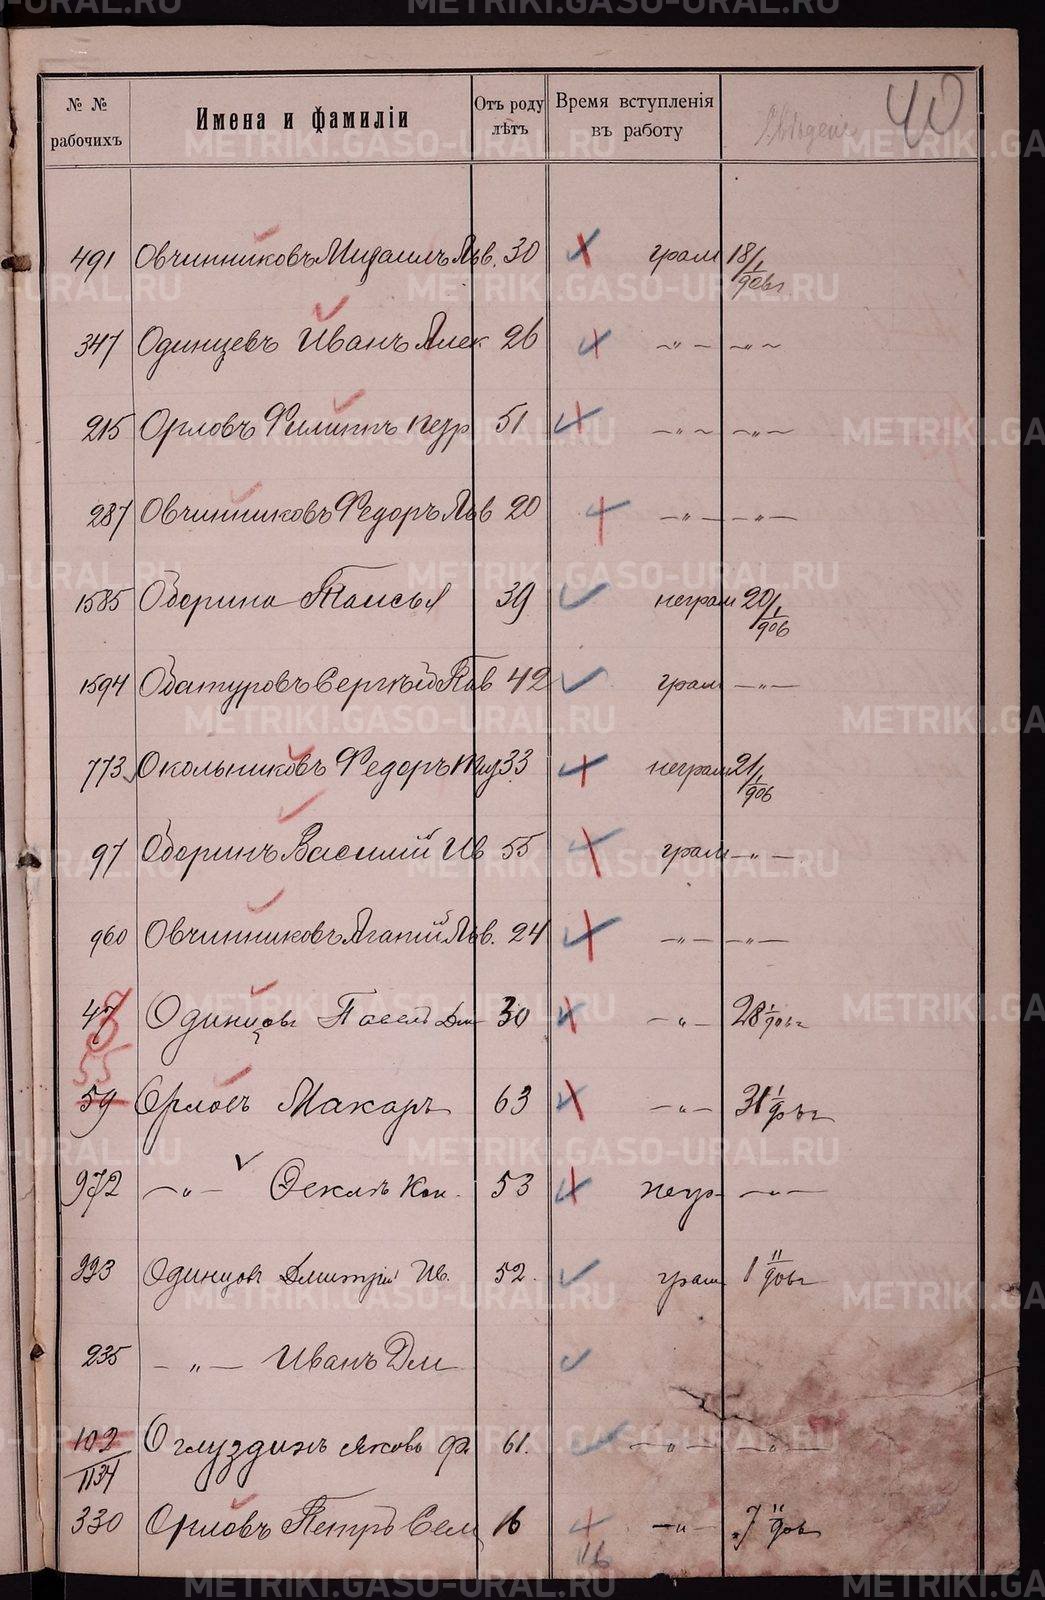 METRIKI.GASO-URAL.RU
40
№ № рабочихъ Имена и фамиліи Отъ роду лѣтъ Время вступленія въ работу
491 Овчинниковъ Михаилъ Льв. 30 грам 18/I 906г
347 Одинцевъ Иванъ Алек 26 —„— —„—
215 Орловъ Филиппъ 51 —„— —„—
287 Овчинниковъ Федоръ Льв 20 —„— —„—
1585 Оберина Таисья 39 неграм 20/I 906
1594 Обатуровъ Сергѣй Пав 42 грам —„—
773 Окольниковъ Федоръ 33 неграм 21/I 906
97 Оберинъ Василій Ив 55 грам —„—
960 Овчинниковъ Агапій Льв. 24 —„— —„—
47 Одинцовъ Павелъ Дм 30 —„— 28 I/906г
55
59 Орловъ Макаръ 63 —„— 31 I/
972 —„— Фекла Кон. 53 негр —„—
993 Одинцовъ Дмитрій Ив. 52. грам 1 II/906г
235 —„— Иванъ Дм
102 Оглуздинъ Яковъ Ф. 61. —„— —„—
1134
330 Орловъ Петръ Сем 16 —„— 7 II/906
116